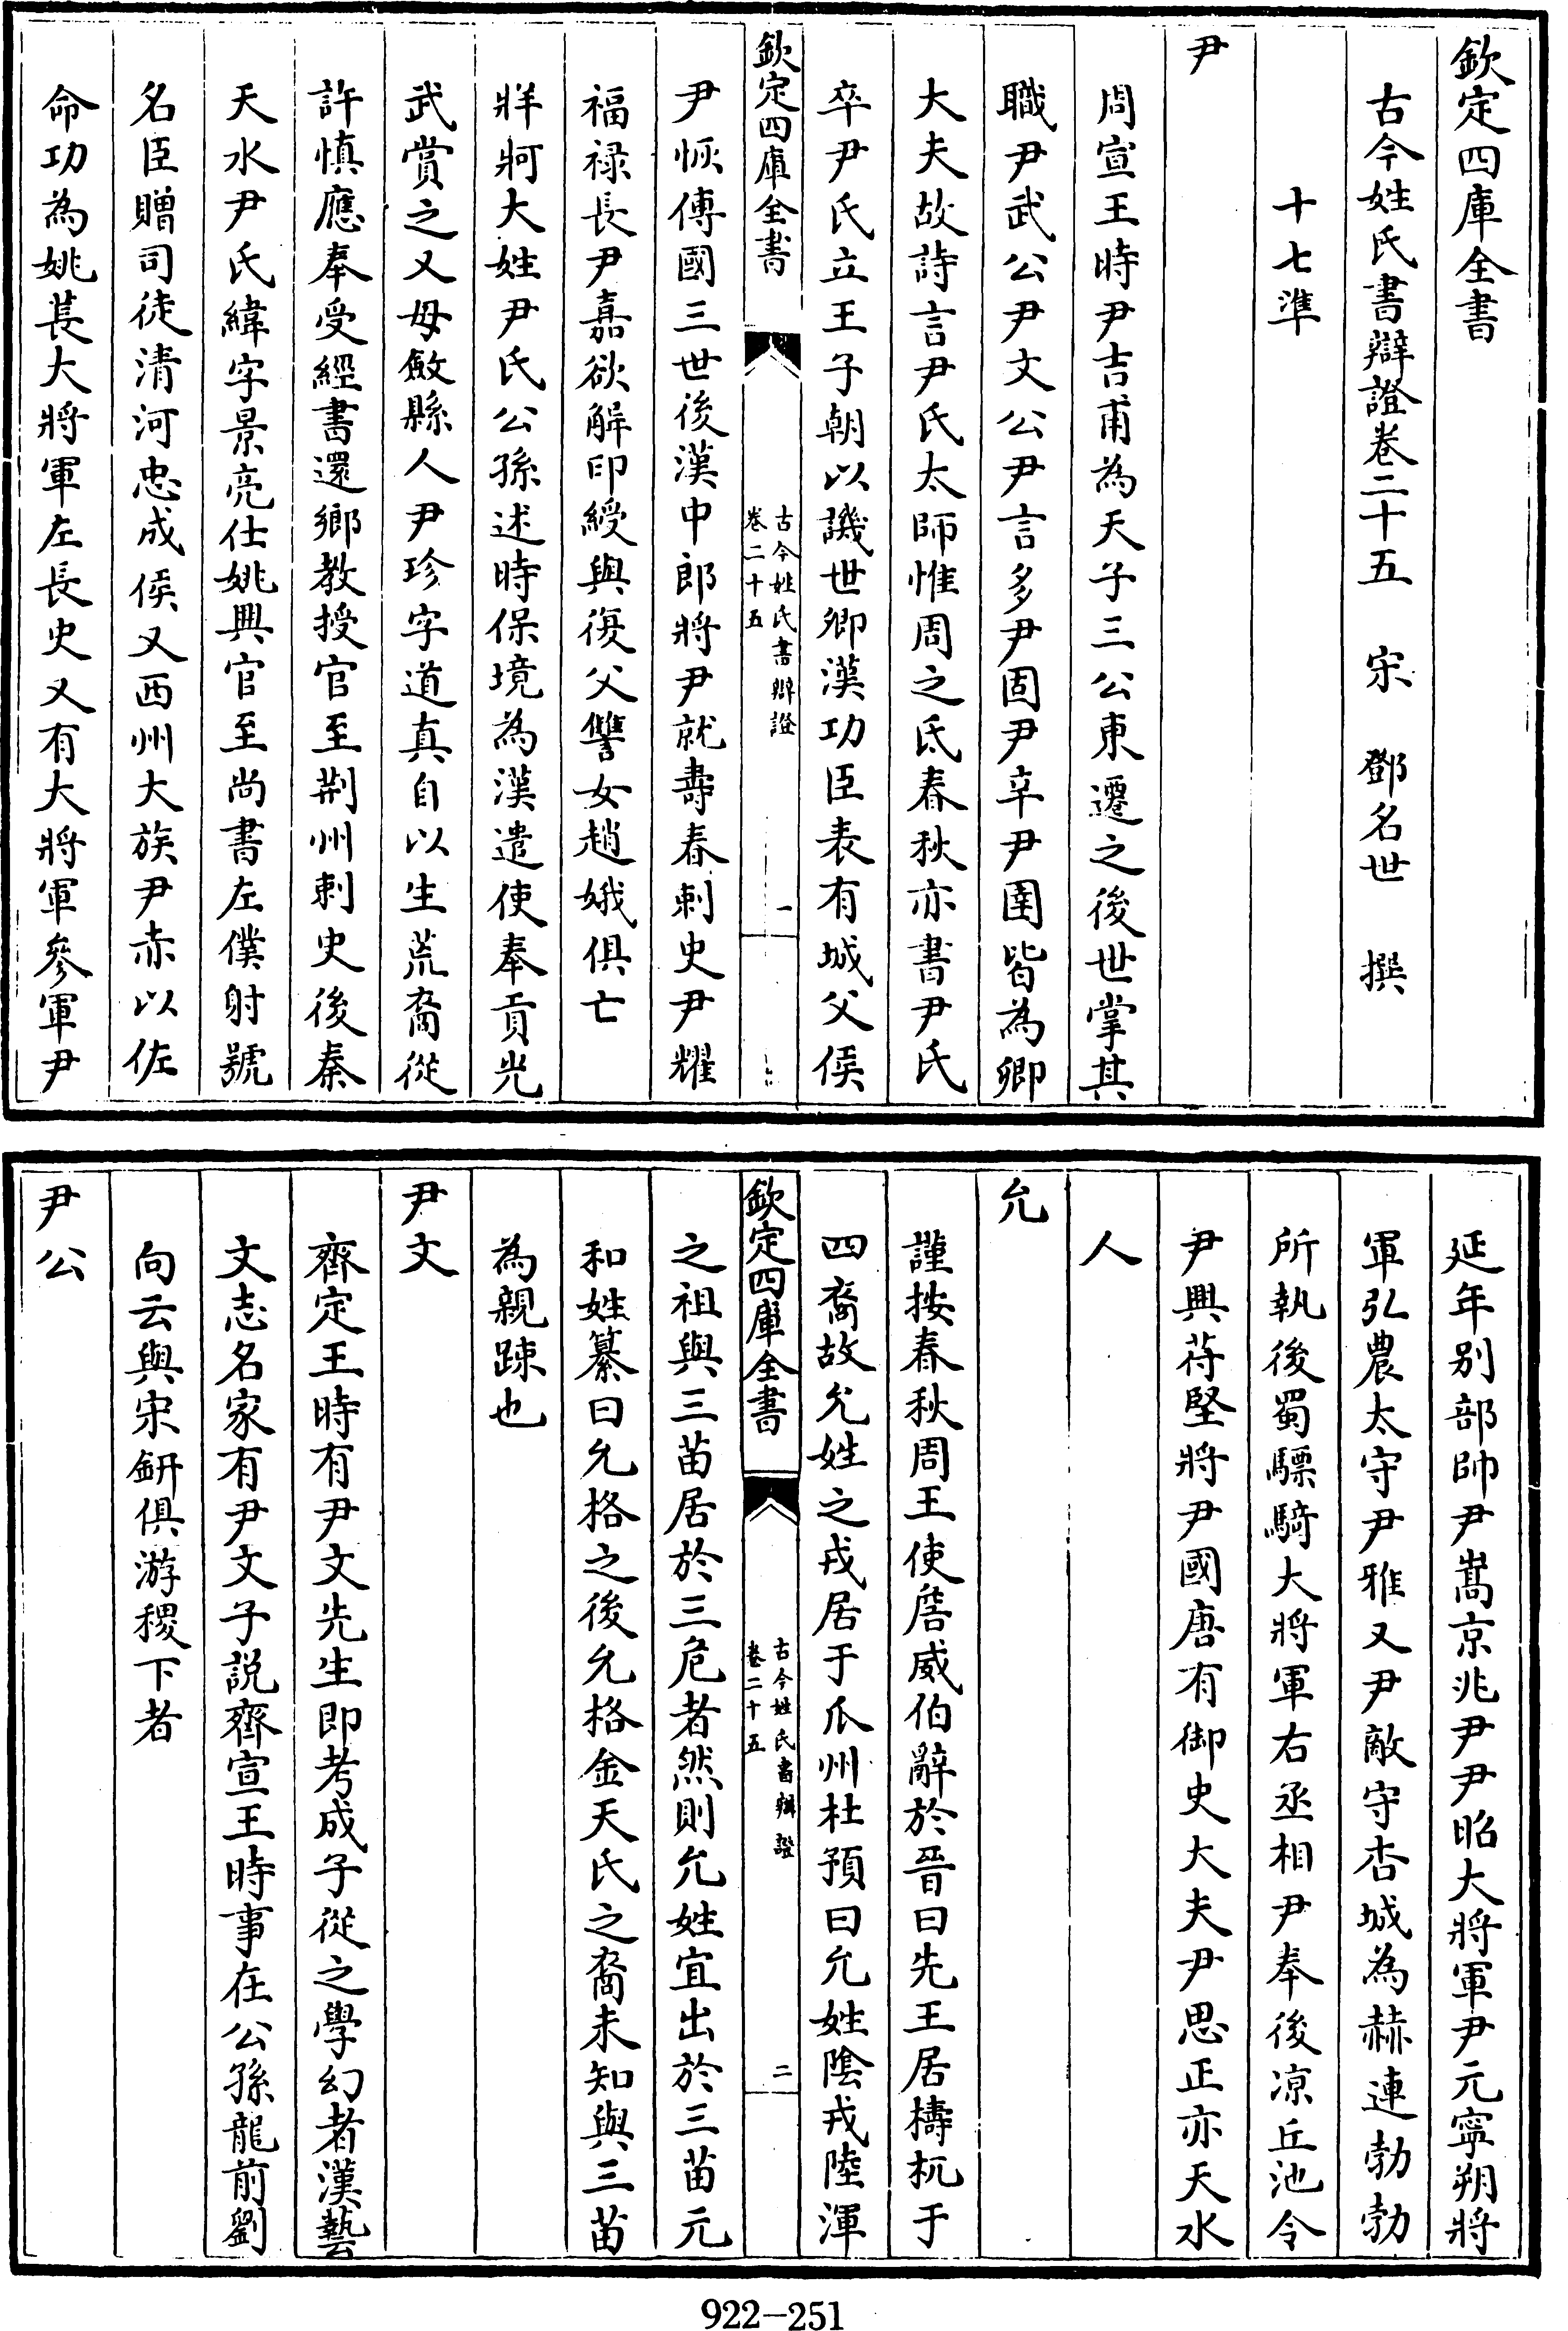 欽定四庫全書
古今姓氏書辯證卷二十五　宋　鄧名世　撰
十七準
尹
周宣王時尹吉甫為天子三公東遷之後世掌其
職尹武公尹文公尹言多尹固尹辛尹圉皆為卿
大夫故詩言尹氏太師惟周之氐春秋亦書尹氏
卒尹氏立王子朝以譏世卿漢功臣表有城父侯
欽定四庫全書
古今姓氏書辯證
卷二十五
一
尹恢傳國三世後漢中郎將尹就壽春刺史尹耀
福禄長尹嘉欲解印綬與復父讐女趙娥俱亡
牂牁大姓尹氏公孫述時保境為漢遣使奉貢光
武賞之又毋斂縣人尹珍字道真自以生荒裔從
許慎應奉受經書還鄉教授官至荆州刺史後秦
天水尹氏緯字景亮仕姚興官至尚書左僕射號
名臣贈司徒清河忠成侯又西州大族尹赤以佐
命功為姚萇大將軍左長史又有大將軍參軍尹
延年别部帥尹嵩京兆尹尹昭大將軍尹元寧朔將
軍弘農太守尹雅又尹敵守杏城為赫連勃勃
所執後蜀驃騎大將軍右丞相尹奉後凉丘池令
尹興苻堅將尹國唐有御史大夫尹思正亦天水
人
允
謹按春秋周王使詹威伯辭於晉曰先王居檮杌于
四裔故允姓之戎居于瓜州杜預曰允姓陰戎陸渾
欽定四庫全書
古今姓氏書辯證
卷二十五
二
之祖與三苗居於三危者然則允姓宜出於三苗元
和姓纂曰允格之後允格金天氏之裔未知與三苗
為親踈也
尹文
齊定王時有尹文先生即考成子從之學幻者漢藝
文志名家有尹文子説齊宣王時事在公孫龍前劉
向云與宋鈃俱游稷下者
尹公
922-251